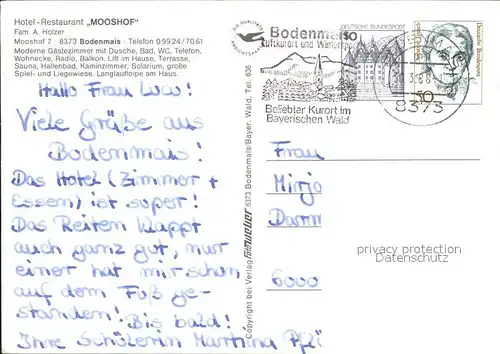 Hotel-Restaurant „MOOSHOF"
Fam. A. Holzer
Mooshof 7 · 8373 Bodenmais · Telefon 0 99 24 / 70 61
Moderne Gästezimmer mit Dusche, Bad, WC, Telefon,
Wohnecke, Radio, Balkon. Lift im Hause, Terrasse,
Sauna, Hallenbad, Kaminzimmer, Solarium, große
Spiel- und Liegewiese. Langlaufloipe am Haus.
Hallo Frau
Viele Grüße aus
Bodenmais!
Das Hotel (Zimmer +
Essen) ist super!
Das Reiten klappt
auch ganz gut, nur
einer hat mir schon
auf dem Fuß ge-
standen! Bis bald!
Ihre Schülerin Martina
DIE QUALITÄTS
ANSICHTSKARTE
Copyright bei Verlag 8373 Bodenmais/Bayer. Wald, Tel. 636
Bodenmais
Luftkurort und Wintersport
Beliebter Kurort im
Bayerischen Wald
DEUTSCHE BUNDESPOST
50
Deutsche Bundespost
50
8373
Frau
Mirja
Damm
6000
privacy protection
Datenschutz